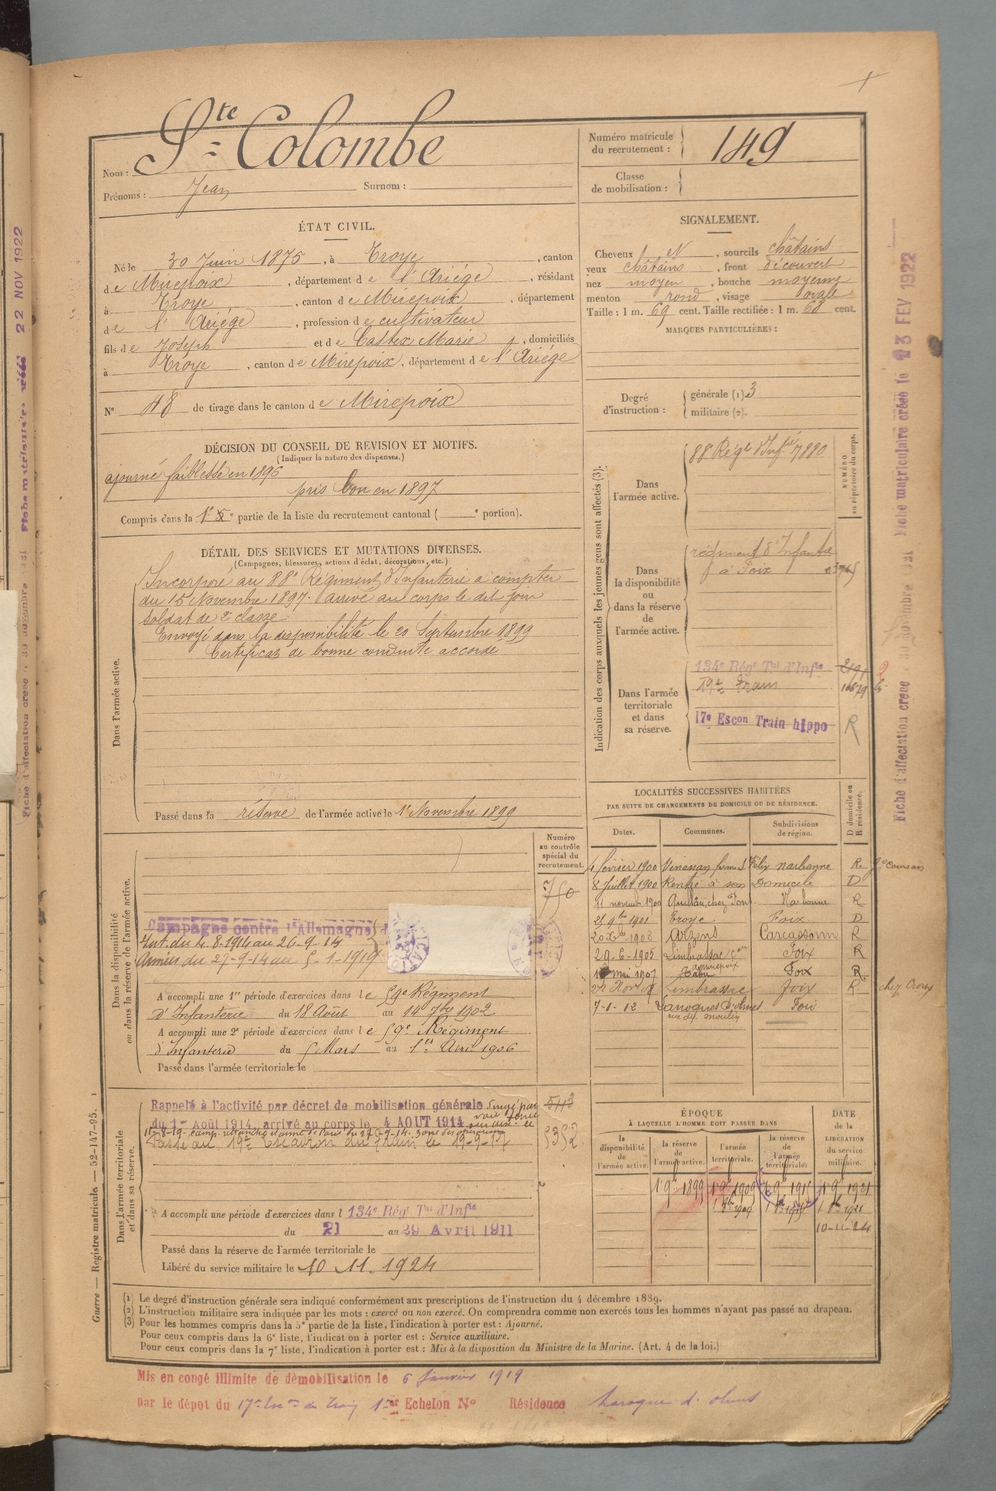 Nom : Ste Colombe
Prénoms : Jean Surnom :
Numéro matricule du recrutement : 149
Classe de mobilisation :
ÉTAT CIVIL.
Né le 30 Juin 1875, à Troye, canton
de Mirepoix, département de l'Ariège, résidant
à Troye, canton de Mirepoix, département
de l'Ariège, profession de cultivateur
fils de Joseph et de Castex Marie, domiciliés
à Troye, canton de Mirepoix, département de l'Ariège
N° 48 de tirage dans le canton de Mirepoix
SIGNALEMENT.
Cheveux et N, sourcils châtains
yeux châtains, front découvert
nez moyen, bouche moyenne
menton rond, visage ovale
Taille : 1 m. 69 cent. Taille rectifiée : 1 m. 68 cent.
MARQUES PARTICULIÈRES :
Degré d'instruction : générale (1) 3
militaire (2).
DÉCISION DU CONSEIL DE REVISION ET MOTIFS.
(Indiquer la nature des dispenses.)
ajourné faiblesse en 1896
pris bon en 1897
Compris dans la 1e partie de la liste du recrutement cantonal ( portion).
DÉTAIL DES SERVICES ET MUTATIONS DIVERSES.
(Campagnes, blessures, actions d'éclat, décorations, etc.)
Dans l'armée active.
Incorporé au 88e Régiment d'Infanterie à compter
du 15 Novembre 1897. Arrivé au corps le dit jour
soldat de 2e classe
Envoyé dans la disponibilité le 20 Septembre 1899
Certificat de bonne conduite accordé
Passé dans la réserve de l'armée active le 1er Novembre 1899
Indication des corps auxquels les jeunes gens sont affectés (3).
NUMÉRO au répertoire du corps.
Dans l'armée active.
88 Régt d'Infie 7880
Dans la disponibilité ou dans la réserve de l'armée active.
régiment d'Infanterie
à Foix
Dans l'armée territoriale et dans sa réserve.
134e Régt Tal d'Infie
19e Train
17e Escon Train hippo R
LOCALITÉS SUCCESSIVES HABITÉES
PAR SUITE DE CHANGEMENTS DE DOMICILE OU DE RÉSIDENCE.
Dates. Communes. Subdivisions de région. D domicile ou R résidence.
février 1900 Vinassan Narbonne R
8 Juillet 1900 Rentré à son Domicile D
11 novembre 1900 Narbonne R
Troye Foix D
Arzens Carcassonne R
29-6-1905 Limbrassac Foix R
mai 1907 Foix R
Limbrassac Foix R
7-1-12 Laroque d'Olmes Foix
Dans la disponibilité ou dans la réserve de l'armée active.
Numéro au contrôle spécial du recrutement.
750
Campagne contre l'Allemagne
Int. du 4.8.1914 au 26-9-14
Armées du 27-9-14 au 5-1-1919
A accompli une 1re période d'exercices dans le 59e Régiment
d'Infanterie du 18 Août au 14 7bre 1902
A accompli une 2e période d'exercices dans le 59e Régiment
d'Infanterie du 5 Mars au 1er Avril 1906
Passé dans l'armée territoriale le
Dans l'armée territoriale et dans sa réserve.
Rappelé à l'activité par décret de mobilisation générale
du 1er Août 1914, arrivé au corps le 4 AOUT 1914
Passé au 19e Escadron du train le 19-9-17
5352
A accompli une période d'exercices dans l 134e Rég Tal d'Infie
du 21 au 29 Avril 1911
Passé dans la réserve de l'armée territoriale le
Libéré du service militaire le 10 11 1924
ÉPOQUE
À LAQUELLE L'HOMME DOIT PASSER DANS
la disponibilité de l'armée active. la réserve de l'armée active. l'armée territoriale. la réserve de l'armée territoriale.
DATE de la LIBÉRATION du service militaire.
1 9e 1899 1 9e 1909 1 9e 1915 1 9e 1921
10-11-24
(1) Le degré d'instruction générale sera indiqué conformément aux prescriptions de l'instruction du 4 décembre 1889.
(2) L'instruction militaire sera indiquée par les mots : exercé ou non exercé. On comprendra comme non exercés tous les hommes n'ayant pas passé au drapeau.
(3) Pour les hommes compris dans la 5e partie de la liste, l'indication à porter est : Ajourné.
Pour ceux compris dans la 6e liste, l'indication à porter est : Service auxiliaire.
Pour ceux compris dans la 7e liste, l'indication à porter est : Mis à la disposition du Ministre de la Marine. (Art. 4 de la loi.)
Mis en congé illimité de démobilisation le 6 Janvier 1919
par le dépot du 17e Esc de Train 1er Echelon N° Résidence Laroque d'Olmes
Guerre — Registre matricule — 52-147-95.
22 NOV 1922
Fiche matriculaire créée le 23 FEV 1922